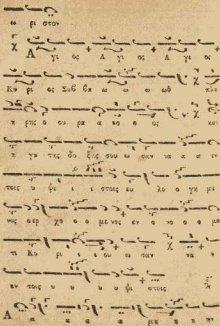 ω ρι στον
Α γι ος Α γι ος Α γι ος
Κυ ρι ος Σαβ βα ω ω ω ωθ πλη
η ρης ο ου ρα α νο ος και
η γη της δο ξης σου ω σαν να α α εν
τοις υ ψι ι ι στοις ευ λο ο γη με
νος ο ερ χο ο ο με νος εν ο νο ο ο μα
τι Κυ ρι ι ου ω σαν να ο
εν τοις υ υ υ υ ψι στοις
Α α α α μη η ην